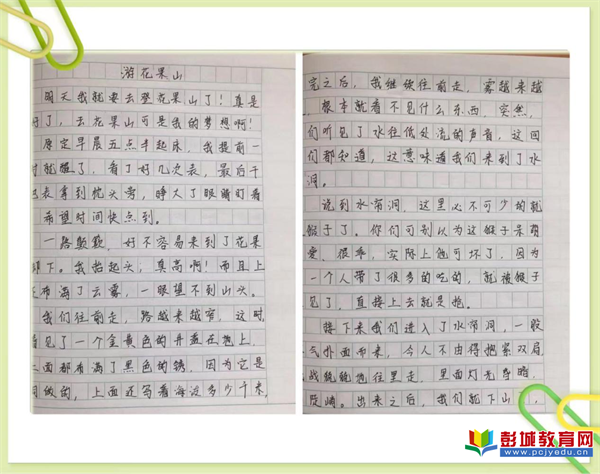 游花果山
明天我就要去登花果山了!真是
好了,去花果山可是我的梦想啊!
原定早晨五点半起床,我提前一
时就醒了,看了好几次表,最后干
把表拿到枕头旁,睁大了眼睛盯着
希望时间快点到。
一路颠簸,好不容易来到了花果
脚下。我抬起头:真高啊!而且上
布满了云雾,一眼望不到山头。
我们往前走,路越来越窄,这时
看见了一个金黄色的井盖在地上,
面都布满了黑色的锈,因为它是
做的,上面还写着海拔多少千米
完之后,我继续往前走,雾越来越
根本就看不见什么东西,突然,
们听见了水往低处流的声音,这回
们都知道,这意味着我们来到了水
洞。
说到水帘洞,这里必不可少的就
猴子了。你们可别以为这猴子呆萌
爱,很乖,实际上他可坏了,因为
一个人带了很多的吃的,就被猴子
见了,直接上去就是抢。
接下来我们进入了水帘洞,一股
气外面而来,令人不由得抱紧双肩
战兢兢地往里走,里面灯光昏暗
陡峭。出来之后,我们就下山,
彭城教育网
www.pcjyedu.cn